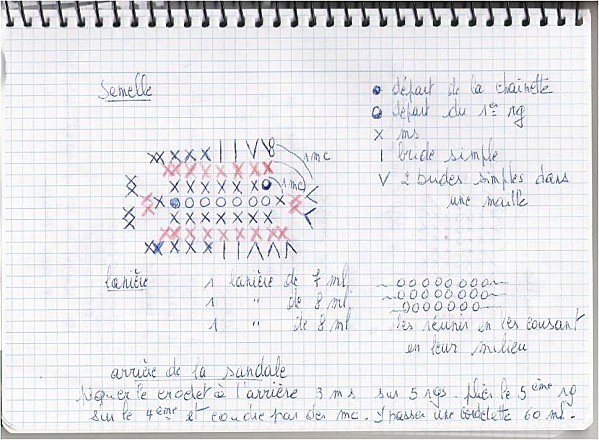 Semelle
départ de la chainette
départ du 1er rg
x ms
1 mc
| bride simple
1 mc
V 2 brides simples dans
une maille
lanière 1 lanière de 7 ml
1 " de 8 ml
1 " de 8 ml
les réunir en les cousant
en leur milieu
arrière de la sandale
piquer le crochet à l'arrière 3 ms sur 5 rgs. plier le 5ème rg
sur le 4ème et coudre par des mc. y passer une cordelette 60 ml.